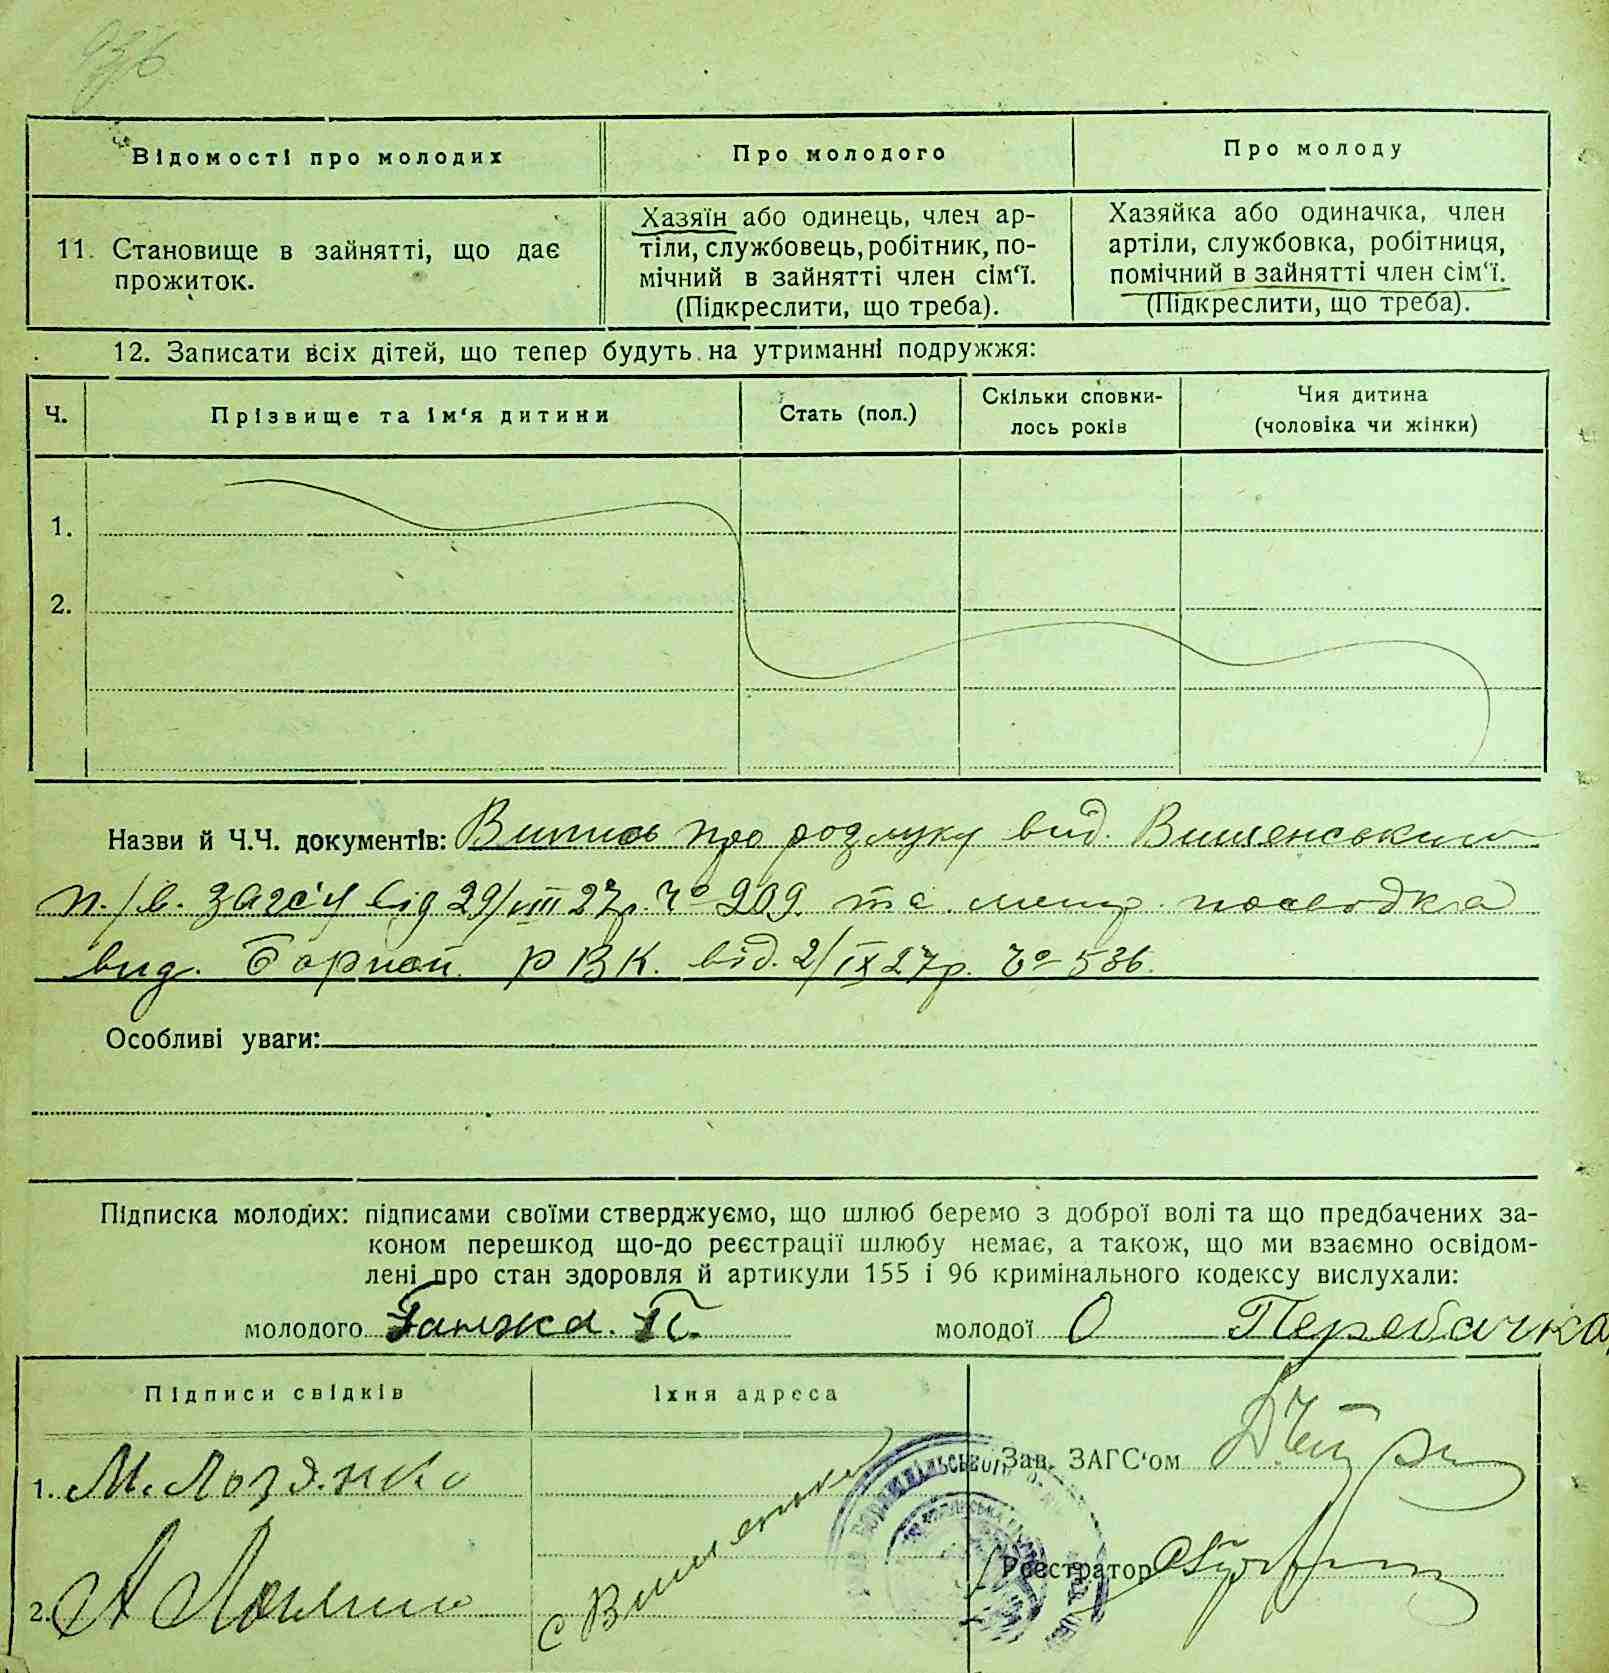 936
Відомості про молодих
Про молодого
Про молоду
11. Становище в зайнятті, що дає
прожиток.
Хазяїн або одинець, член ар-
тіли, службовець, робітник, по-
мічний в зайнятті член сім'ї.
(Підкреслити, що треба).
Хазяйка або одиначка, член
артіли, службовка, робітниця,
помічний в зайнятті член сім'ї.
(Підкреслити, що треба).
12. Записати всіх дітей, що тепер будуть на утриманні подружжя:
Ч.
Прізвище та ім'я дитини
Стать (пол.)
Скільки сповни-
лось років
Чия дитина
(чоловіка чи жінки)
1.
2.
Назви й Ч.Ч. документів: Випись про розлуку вид. Вишенським
п./в. загс'у від 29/VIII 27р. Ч° 909. та посвідка
вид. РВК. від. 2/IX 27р. Ч° 536.
Особливі уваги:
Підписка молодих: підписами своїми стверджуємо, що шлюб беремо з доброї волі та що предбачених за-
коном перешкод що-до реєстрації шлюбу немає, а також, що ми взаємно освідом-
лені про стан здоровля й артикули 155 і 96 кримінального кодексу вислухали:
молодого Ганжа. П.
молодої О Перебачка
Підписи свідків
Їхня адреса
1. М. Лозянко
2. А
с Вишеньки
Зав. ЗАГС'ом
Реєстратор